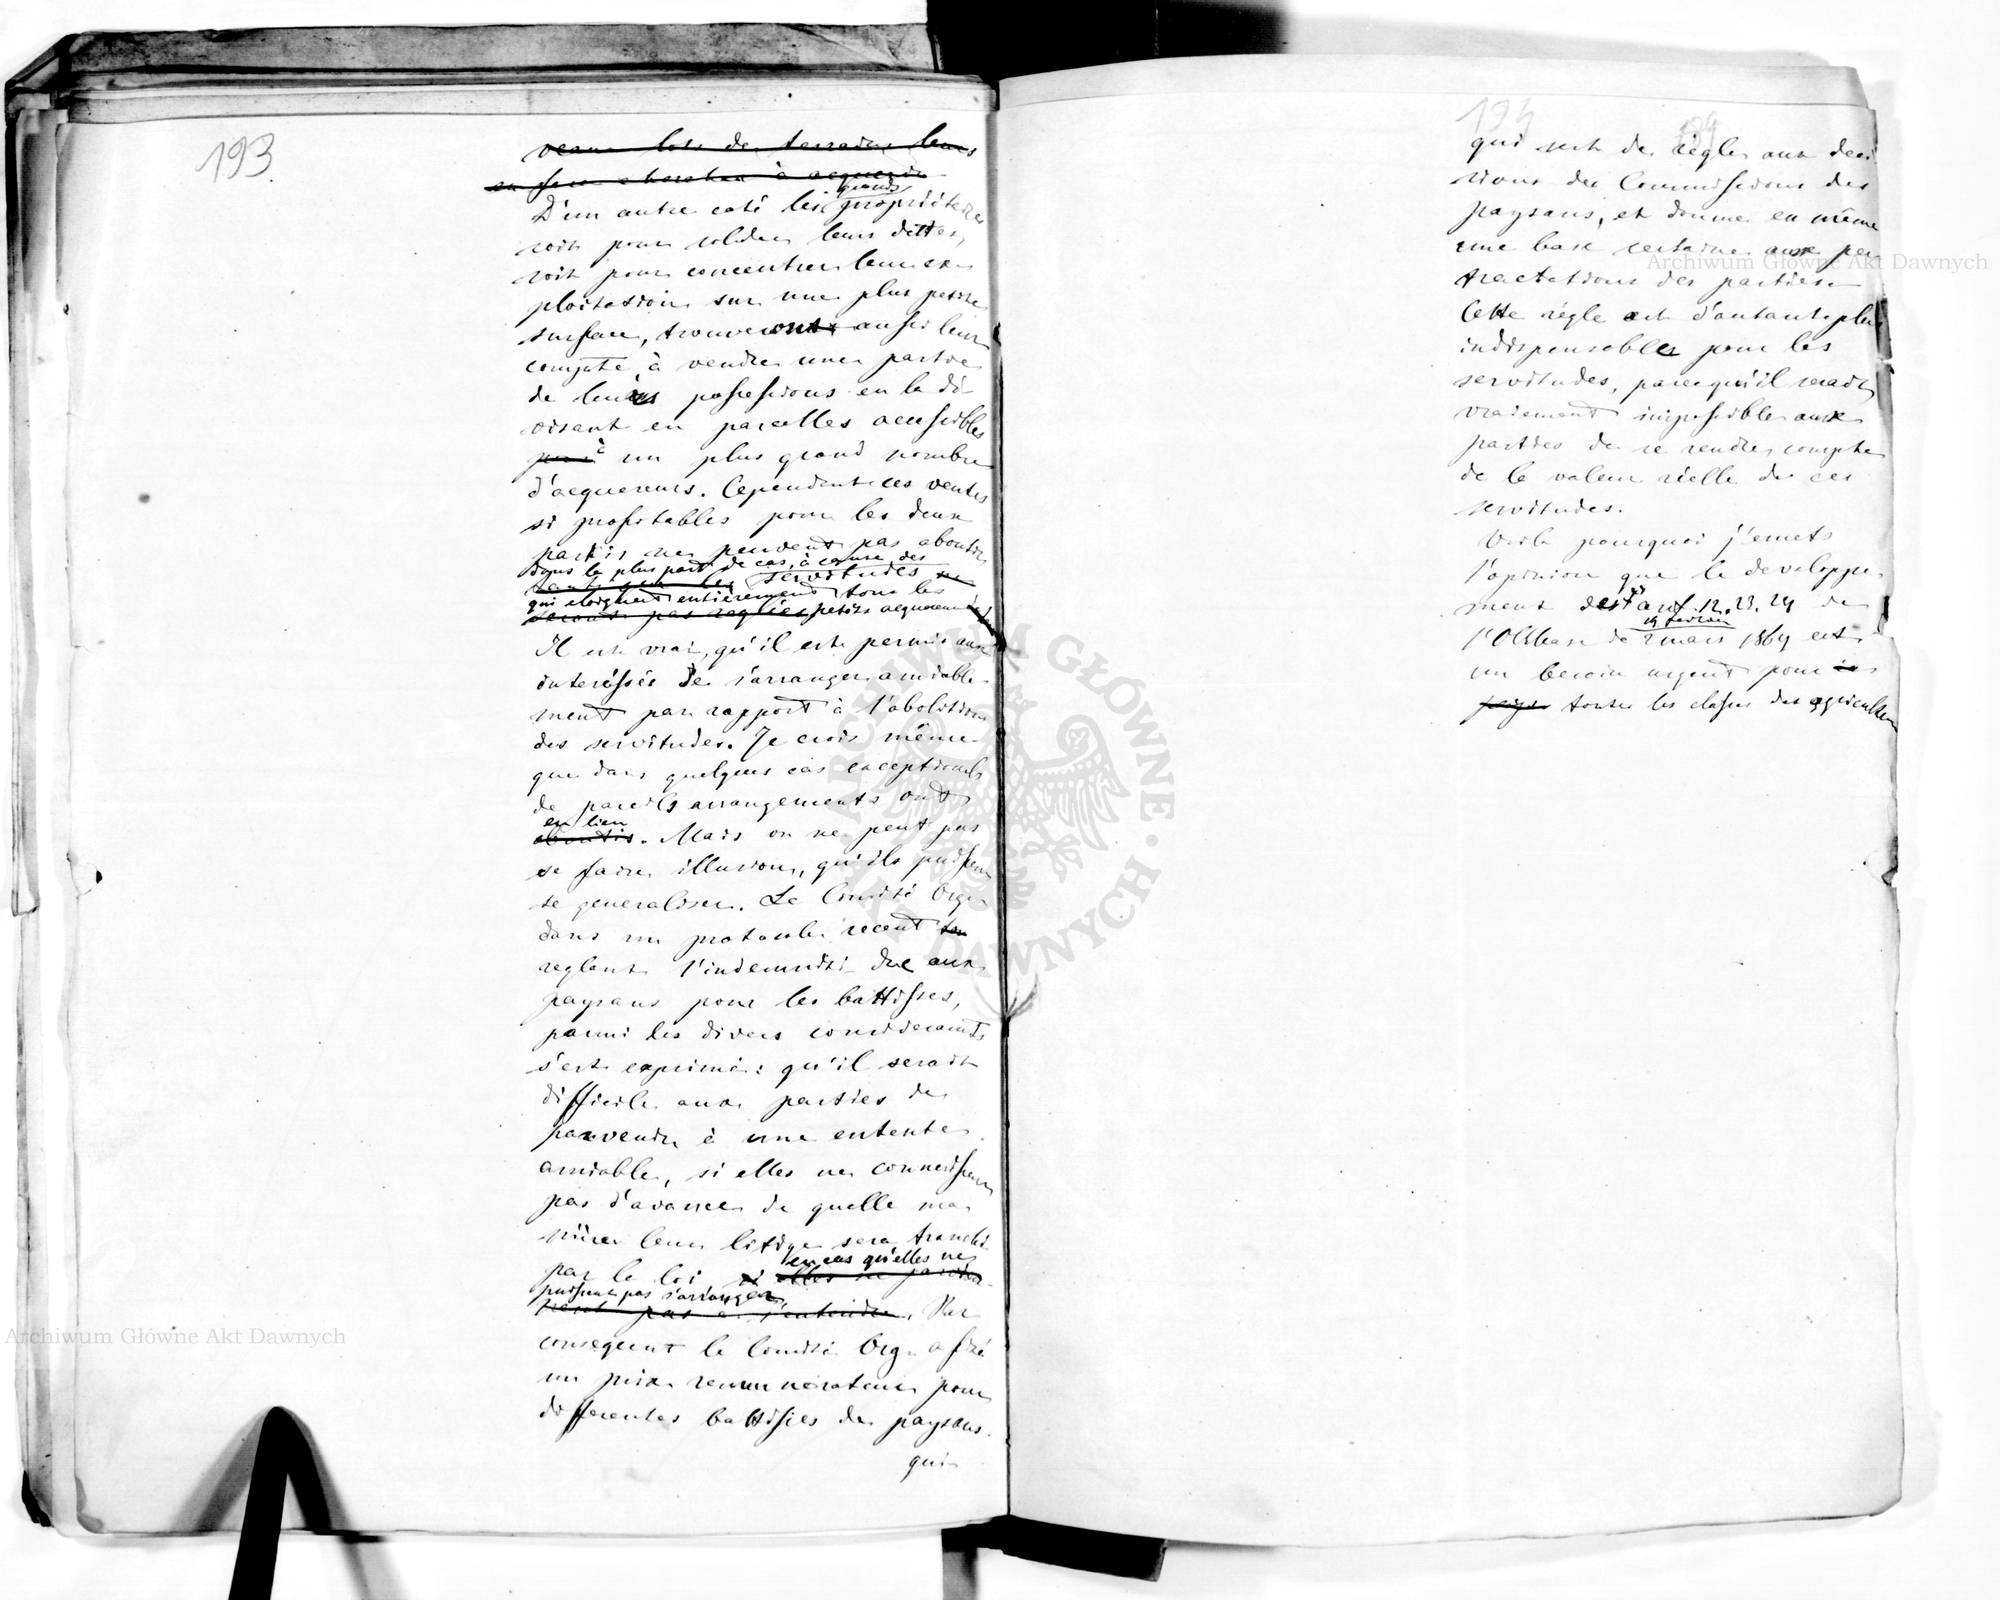 193.
veaux lots de terrains leurs
en fera chercher à acquerir
D'un autre coté les grands propriétaires
soit pour solder leurs dettes,
soit pour concentrer leur ex-
ploitation sur une plus petite
surface, trouveront aussi leur
compte à vendre une partie
de leurs possessions en la di-
visant en parcelles accessibles
à un plus grand nombre
d'acquereurs. Cependant ces ventes
si profitables pour les deux
partis ne peuvent pas aboutir
dans la plus part de cas, à cause des
servitudes
qui eloignent entièrement tous les
seront pas reglées petits acquereurs
Il est vrai, qu'il est permis aux
interéssés de s'arranger amiable-
ment par rapport à l'abolition
des servitudes. Je crois même
que dans quelques cas exceptionels
de pareils arrangements ont
eu lieu
aboutis. Mais on ne peut pas
se faire illusion, qu'ils puissent
se generaliser. Le Comité Org.
dans un protocole recent
reglant l'indemnité due aux
paysans pour les battisses,
parmi les divers considerants
s'est exprimé: qu'il serait
difficile aux parties de
parvenir à une entente
amiable, si elles ne connaissent
pas d'avance de quelle ma-
nière leur litige sera tranché
en cas qu'elles ne
par la loi, si elles ne
puissent pas s'arranger
pas à s'entendre. Par
consequent le Comité Org. a fixé
un prix remunerateur pour
differentes battisses des paysans.
qui
194
qui sert de règle aux deci-
sions des Commissions des
paysans, et donne en même
une base certaine aux per
tractations des parties.
Cette règle est d'autant plus
indispensable pour les
servitudes, parcequ'il serait
vraiement impossible aux
parties de se rendre compte
de la valeur réelle de ces
servitudes.
Voila pourquoi j'emets
l'opinion que le developpe-
ment des art. 12. 23. 24 de
19 fevrier
l'Oukase de 2 mars 1864 est
un besoin urgent pour
pays toutes les classes des agriculteurs
Archiwum Główne Akt Dawnych
Archiwum Główne Akt Dawnych
ARCHIWUM GŁÓWNE AKT DAWNYCH